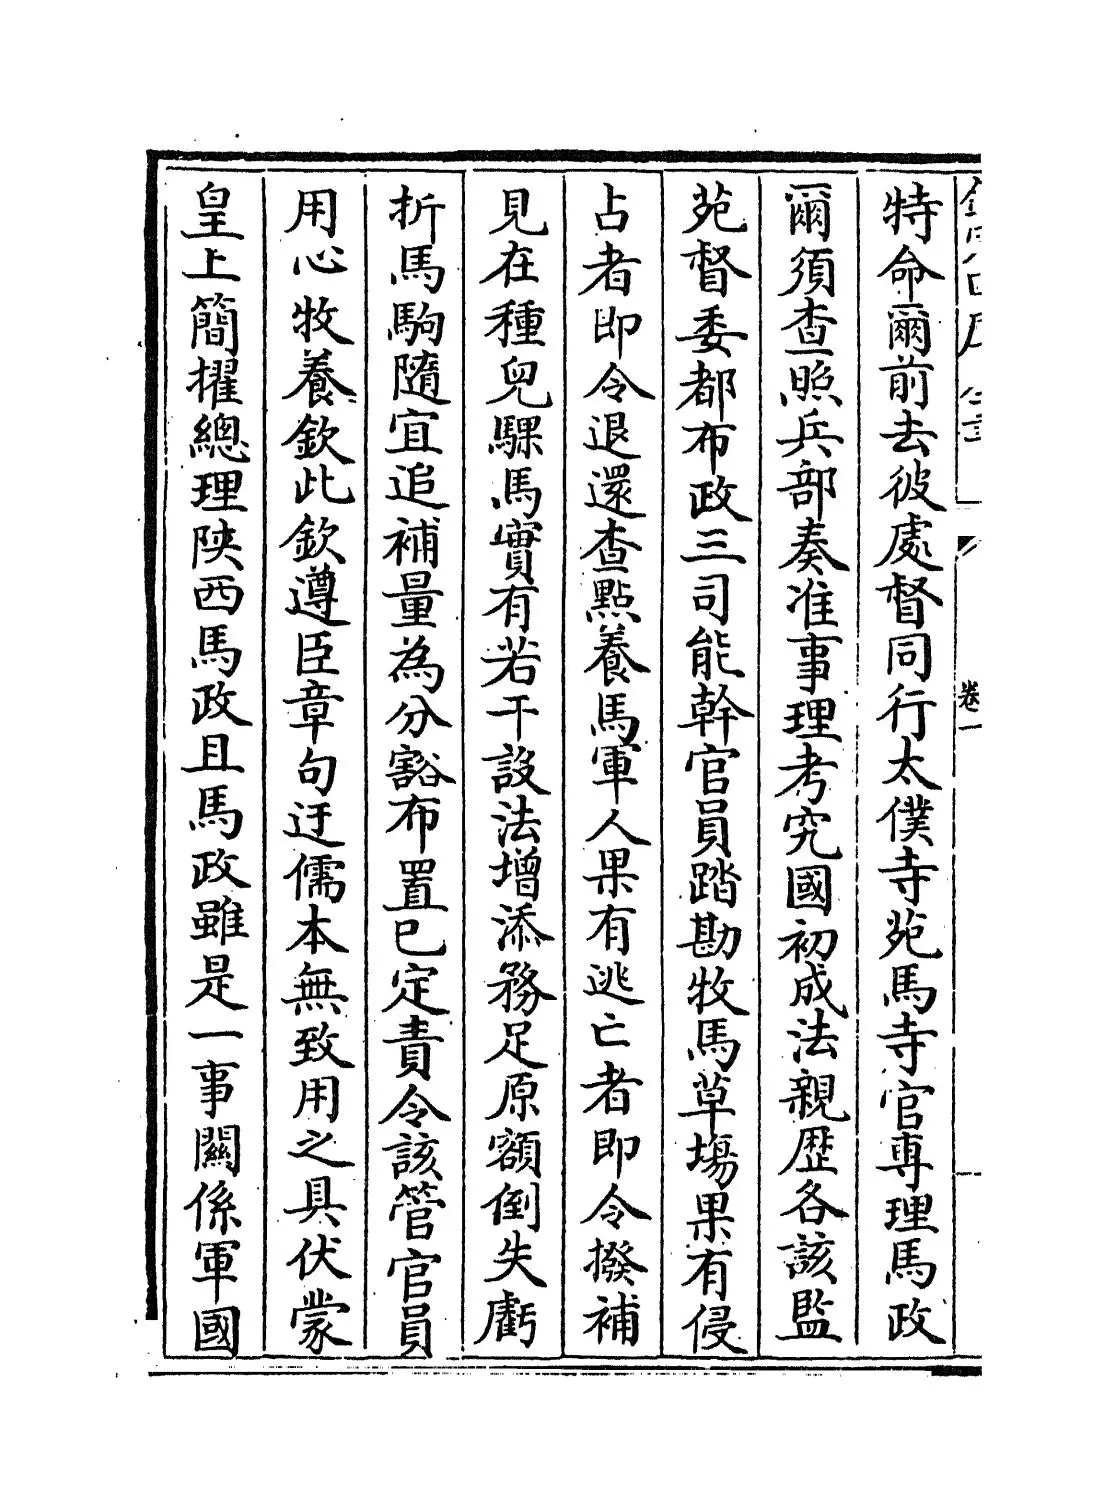 特命爾前去彼處督同行太僕寺苑馬寺官專理馬政
爾須查照兵部奏准事理考究國初成法親歷各該監
苑督委都布政三司能幹官員踏勘牧馬草場果有侵
占者即令退還查點養馬軍人果有逃亡者即令撥補
見在種兒騍馬實有若干設法增添務足原額倒失虧
折馬駒隨宜追補量為分豁布置已定責令該管官員
用心牧養欽此欽遵臣章句迂儒本無致用之具伏蒙
皇上簡擢總理陝西馬政且馬政雖是一事關係軍國
卷一